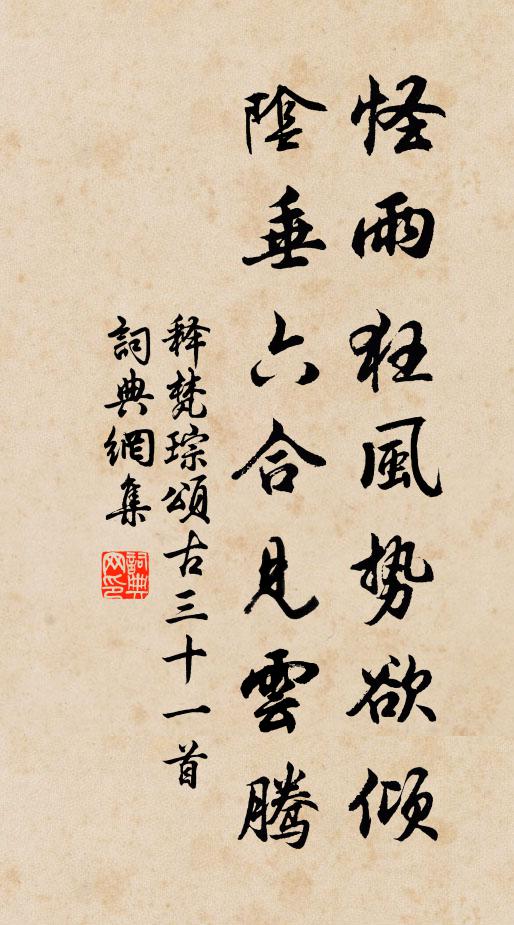 怪雨狂風势欲傾
陰垂六合見雲騰
释梵琮頌古三十一首
詞典網集
詞典网印